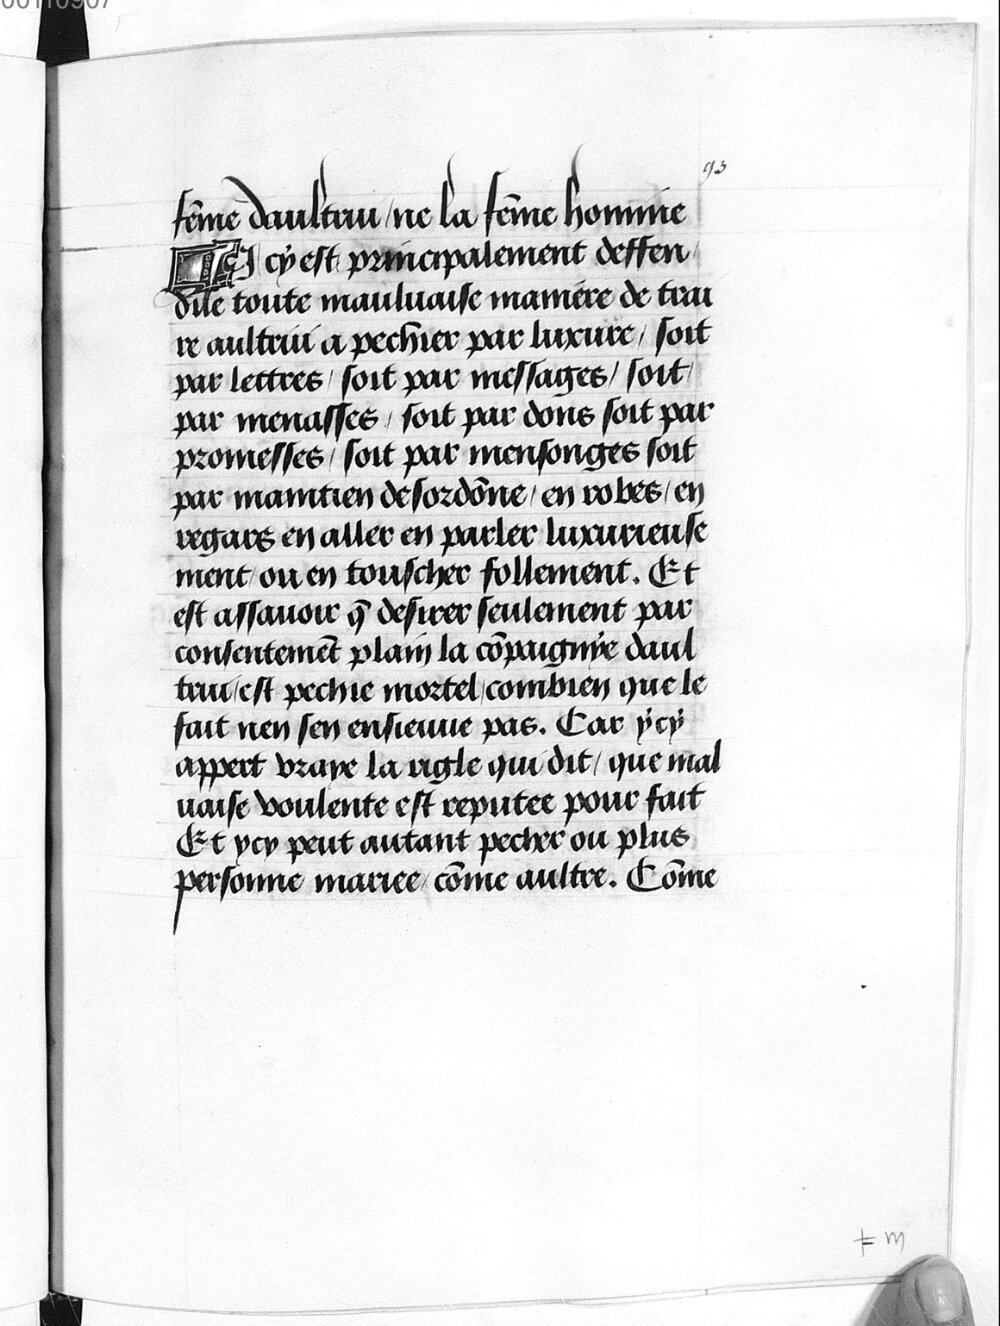 00110907
93
fēme daultrui / ne la fēme homme
ICy est principalement deffen
due toute mauluaise maniere de trai
re aultrui a pechier par luxure / soit
par lettres / soit par messages / soit /
par menasses / soit par dons soit par
promesses / soit par mensonges soit
par maintien desordōne / en robes / en
regars en aller en parler luxurieuse
ment / ou en touscher follement. Et
est assauoir q̄ desirer seulement par
consentemēt plain la cōpaignye daul
trui / est pechie mortel / combien que le
fait nen sen ensieuue pas. Car ycy
appert vraye la rigle qui dit / que mal
uaise voulente est reputee pour fait
Et ycy peut autant pecher ou plus
personne mariee / cōme aultre. Cōme